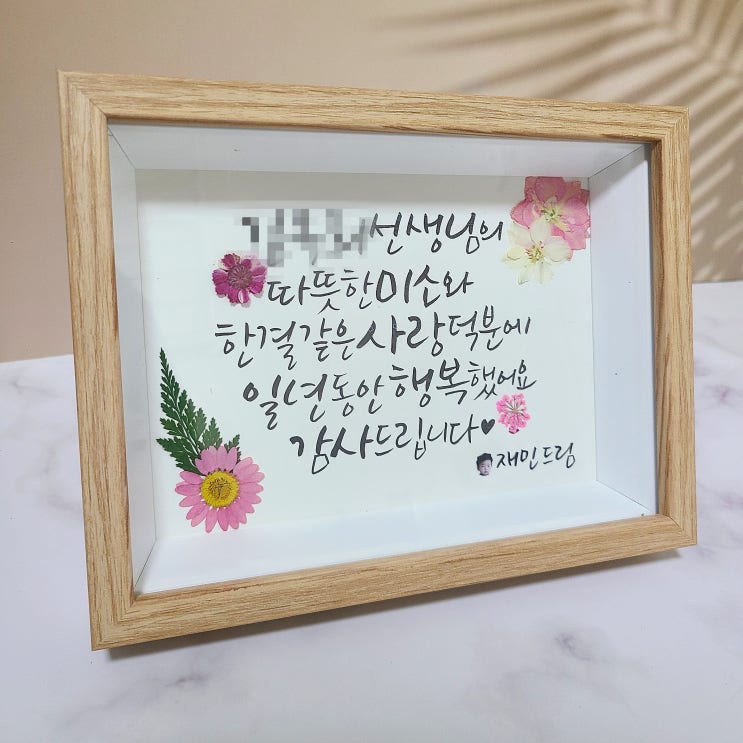 선생님의
따뜻한미소와
한결같은사랑덕분에
일년동안행복했어요
감사드립니다♥
재민드림